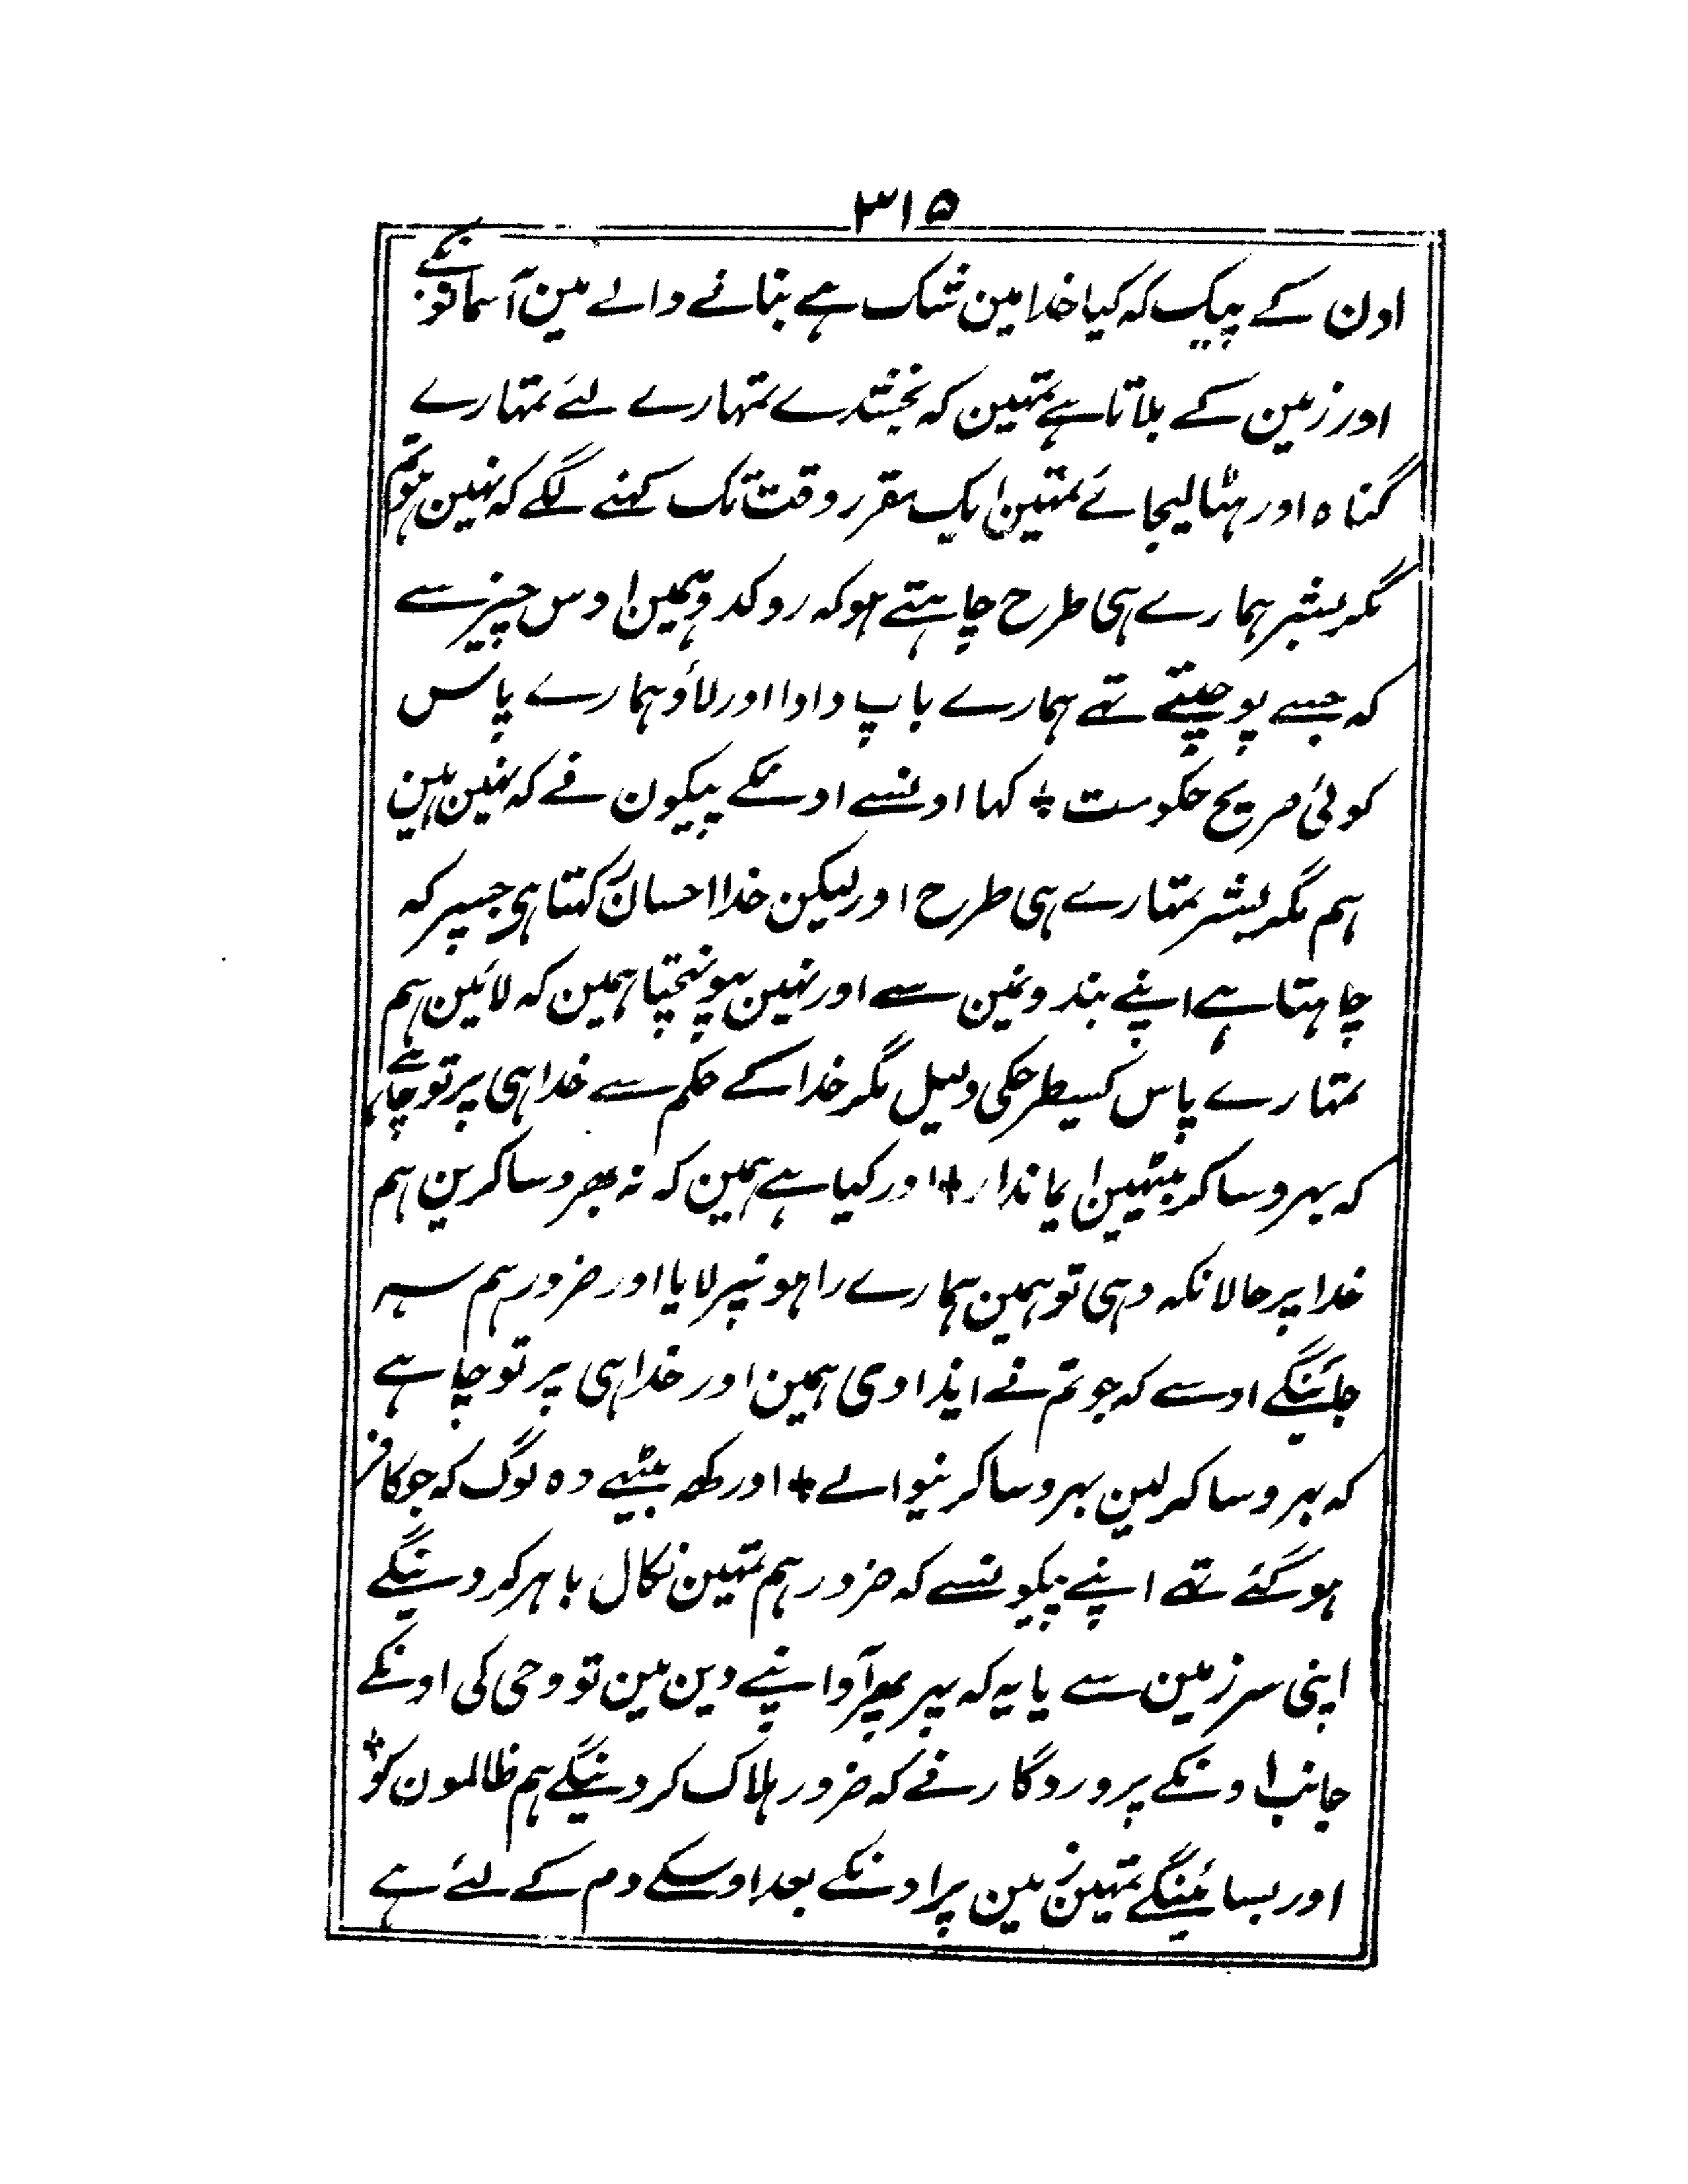 ۳۱۵
اون کے پیک کہ کیا خدا مین شک ہے بنانے والے مین آسمانونکے
اور زمین کے بلاتا ہے تمہین کہ بخشدے تمہارے لئے تمہارے
گناہ اور ہٹا لیجائے تمہین ایک مقرر وقت تک کہنے لگے کہ نہین ہو تم
مگر بشر ہمارے ہی طرح چاہتے ہو کہ روکدو ہمین اوس چیز سے
کہ جسے پوجتے تھے ہمارے باپ دادا اور لاؤ ہمارے پاس
کوئی صریح حکومت + کہا اونسے اونکے پیکون نے کہ نہین ہین
ہم مگر بشر تمہارے ہی طرح اور لیکن خدا احسان رکہتا ہی جسپر کہ
چاہتا ہے اپنے بندونمین سے اور نہین پہونچتا ہمین کہ لائین ہم
تمہارے پاس کسیطرحکی دلیل مگر خدا کے حکم سے خدا ہی پر تو چاہئے
کہ بہروسا کر بیٹہین ایماندار + اور کیا ہے ہمین کہ نہ بھروسا کرین ہم
خدا پر حالانکہ وہی تو ہمین ہمارے راہونپر لایا اور ضرور ہم سہ
جائینگے اوسے کہ جو تم نے ایذا دی ہمین اور خدا ہی پر تو چاہے
کہ بہروسا کر لین بہروسا کرنیوالے + اور کھ بیٹہے وہ لوگ کہ جو کافر
ہو گئے تھے اپنے پیکونسے کہ ضرور ہم تمہین نکال باہر کر دینگے
اپنی سرزمین سے یا یہ کہ پہر پھر آوا اپنے دین مین تو وحی کی اونکے
جانب اونکے پروردگار نے کہ ضرور ہلاک کر دینگے ہم ظالمون کو +
اور بسائینگے تمہین زمین پر اونکے بعد اوسکے دم کے لئے ہے